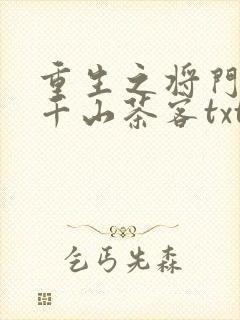 重生之将门
千山茶客txt
乞丐先森